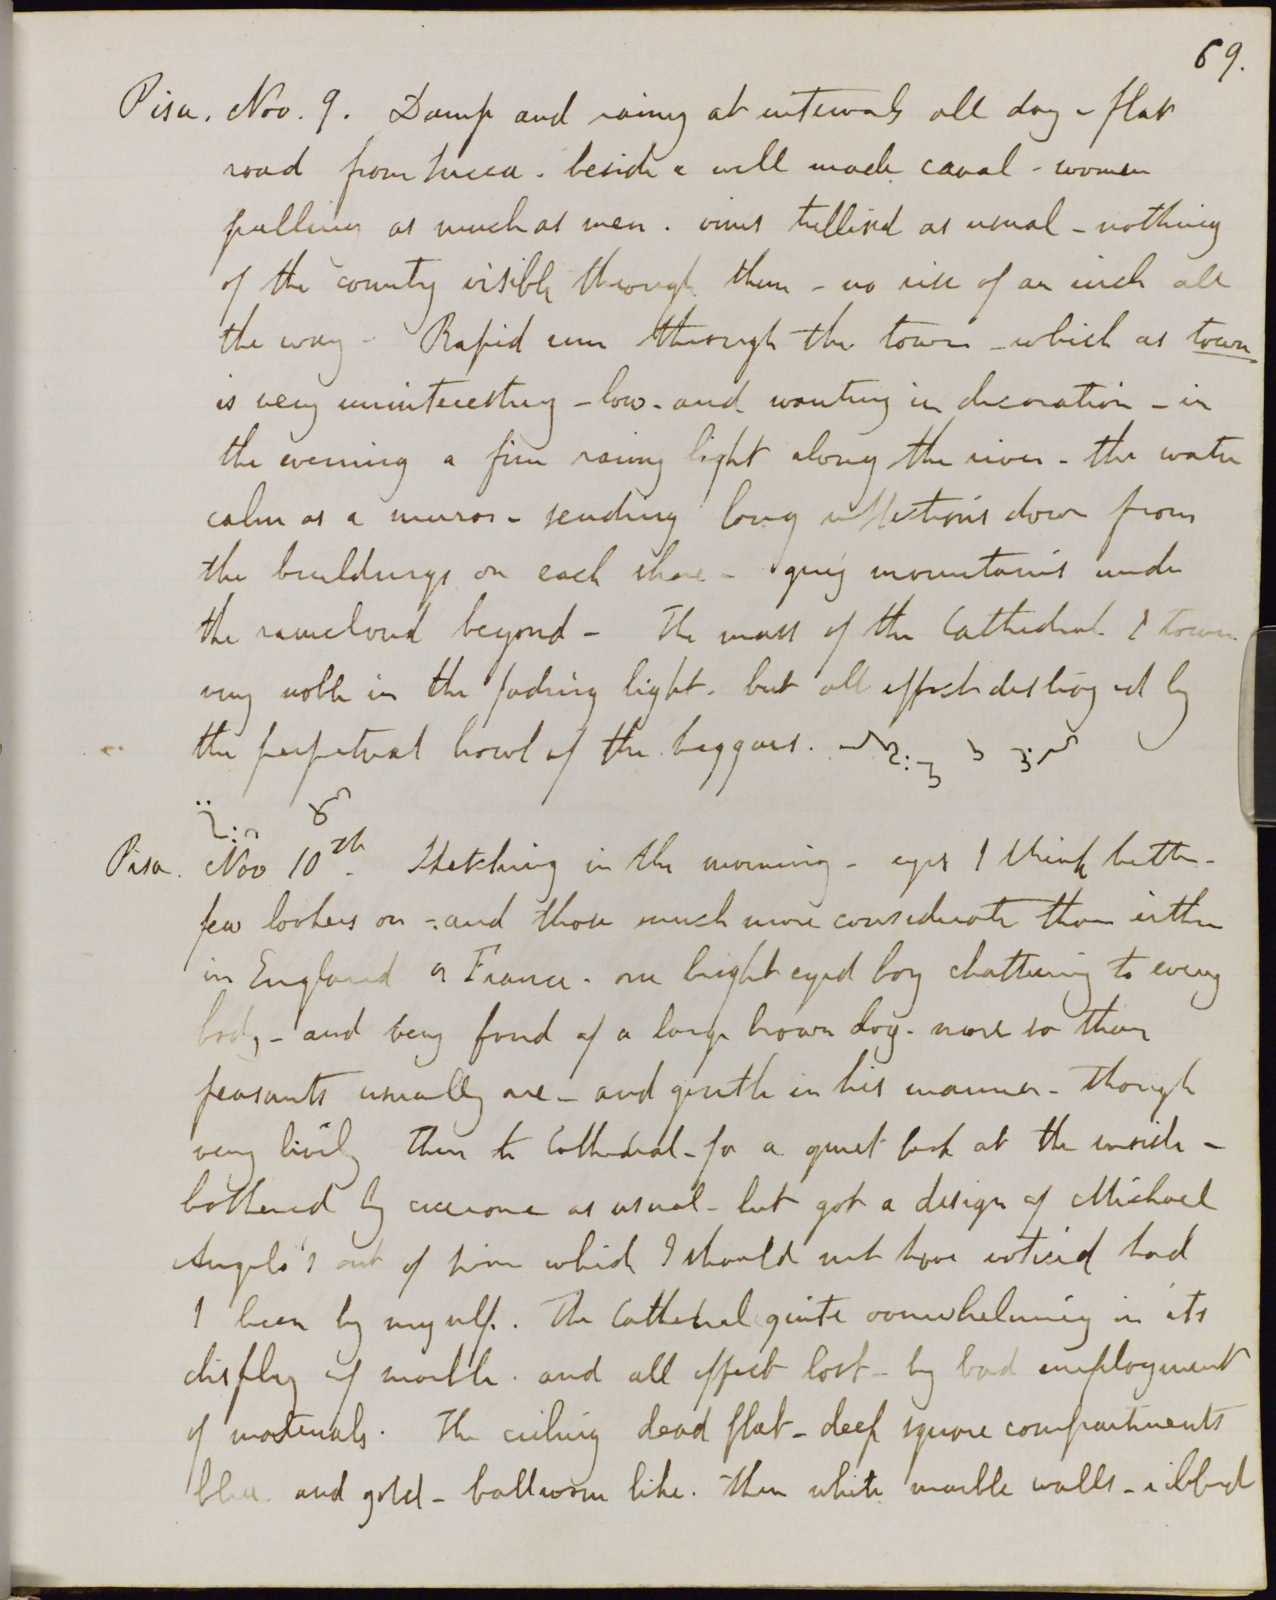 69.
Pisa. Nov. 9. Damp and rainy at intervals all day - flat
road from Lucca - beside a well made canal - women
pulling as much as men. vines trellised as usual - nothing
of the country visible through them - no rise of an inch all
the way - Rapid run through the town - which as town
is very uninteresting - low - and wanting in decoration - in
the evening a fine rainy light along the river - the water
calm as a mirror - sending long reflections down from
the buildings on each shore - grey mountains under
the raincloud beyond - The mass of the Cathedral & tower
very noble in the fading light. but all effect destroyed by
the perpetual howl of the beggars.
Pisa. Nov 10th. Sketching in the morning - eyes I think better -
few lookers on - and those much more considerate than either
in England or France. one bright eyed boy chattering to every
body - and very fond of a large brown dog - more so than
peasants usually are - and gentle in his manner - though
very lively Then to Cathedral - for a quiet look at the inside -
bothered by cicerone as usual - but got a design of Michael
Angelo's out of him which I should not have noticed had
I been by myself. The Cathedral quite overwhelming in its
display of marble. and all effect lost - by bad employment
of materials. The ceiling dead flat - deep square compartments
blue and gold - ballroom like. Then white marble walls - ribbed